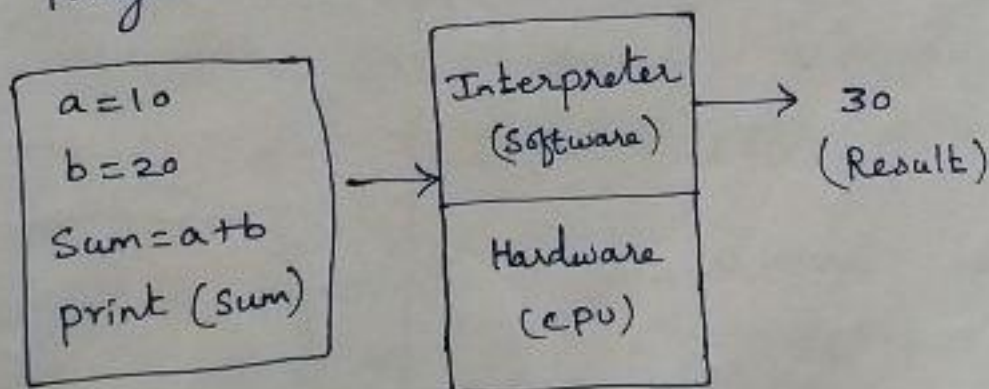 a=10
b=20
Sum=a+b
print (Sum)
Interpreter
(Software)
Hardware
(CPU)
30
(Result)